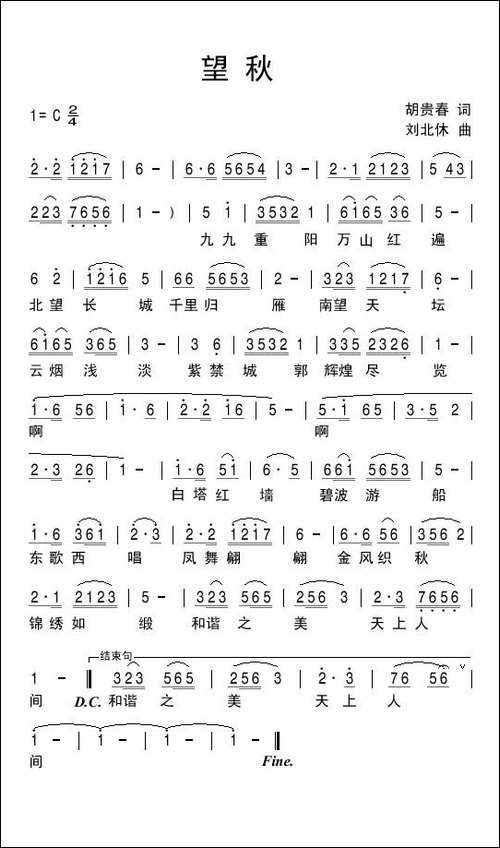 望 秋
1= C 2/4
胡贵春 词
刘北休 曲
2·2 1217 | 6 - | 6·6 5654 | 3 - | 2·1 2123 | 5 43 |
223 7656 | 1 - ) | 5 1 | 3532 1 | 6165 36 | 5 - |
九 九 重 阳 万 山 红 遍
6 2 | 1216 5 | 66 5653 | 2 - | 323 1217 | 6 - |
北 望 长 城 千里 归 雁 南望 天 坛
6165 365 | 3 - | 3 6 | 3532 1 | 335 2326 | 1 - |
云 烟 浅 淡 紫 禁 城 郭 辉煌 尽 览
1·6 56 | 1·6 | 2·2 16 | 2 - | 5·1 65 | 3·5 2 |
啊 啊
2·3 26 | 1 - | 1·6 51 | 6·5 | 661 5653 | 5 - |
白 塔 红 墙 碧波 游 船
1·6 361 | 2·3 | 2·2 1217 | 6 - | 6·6 56 | 356 2 |
东 歌 西 唱 凤 舞 翩 翩 金 风 织 秋
2·1 2123 | 5 - | 323 565 | 256 3 | 2·3 7656 |
锦 绣 如 缎 和谐 之 美 天 上 人
结束句
1 - ‖ 323 565 | 256 3 | 2·3 | 76 56 |
间 D.C. 和谐 之 美 天 上 人
1 - | 1 - | 1 - | 1 - ‖
间 Fine.